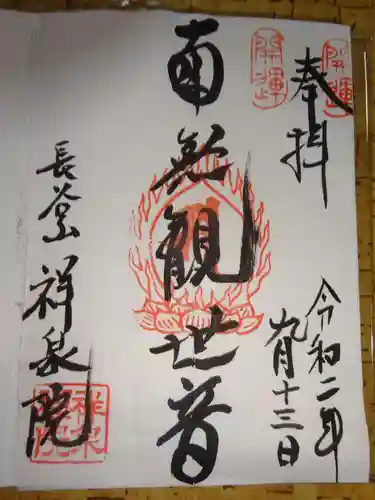 奉拝
開運
開運
令和二年
九月十三日
南無観世音
長谷山
祥泉院
祥泉院